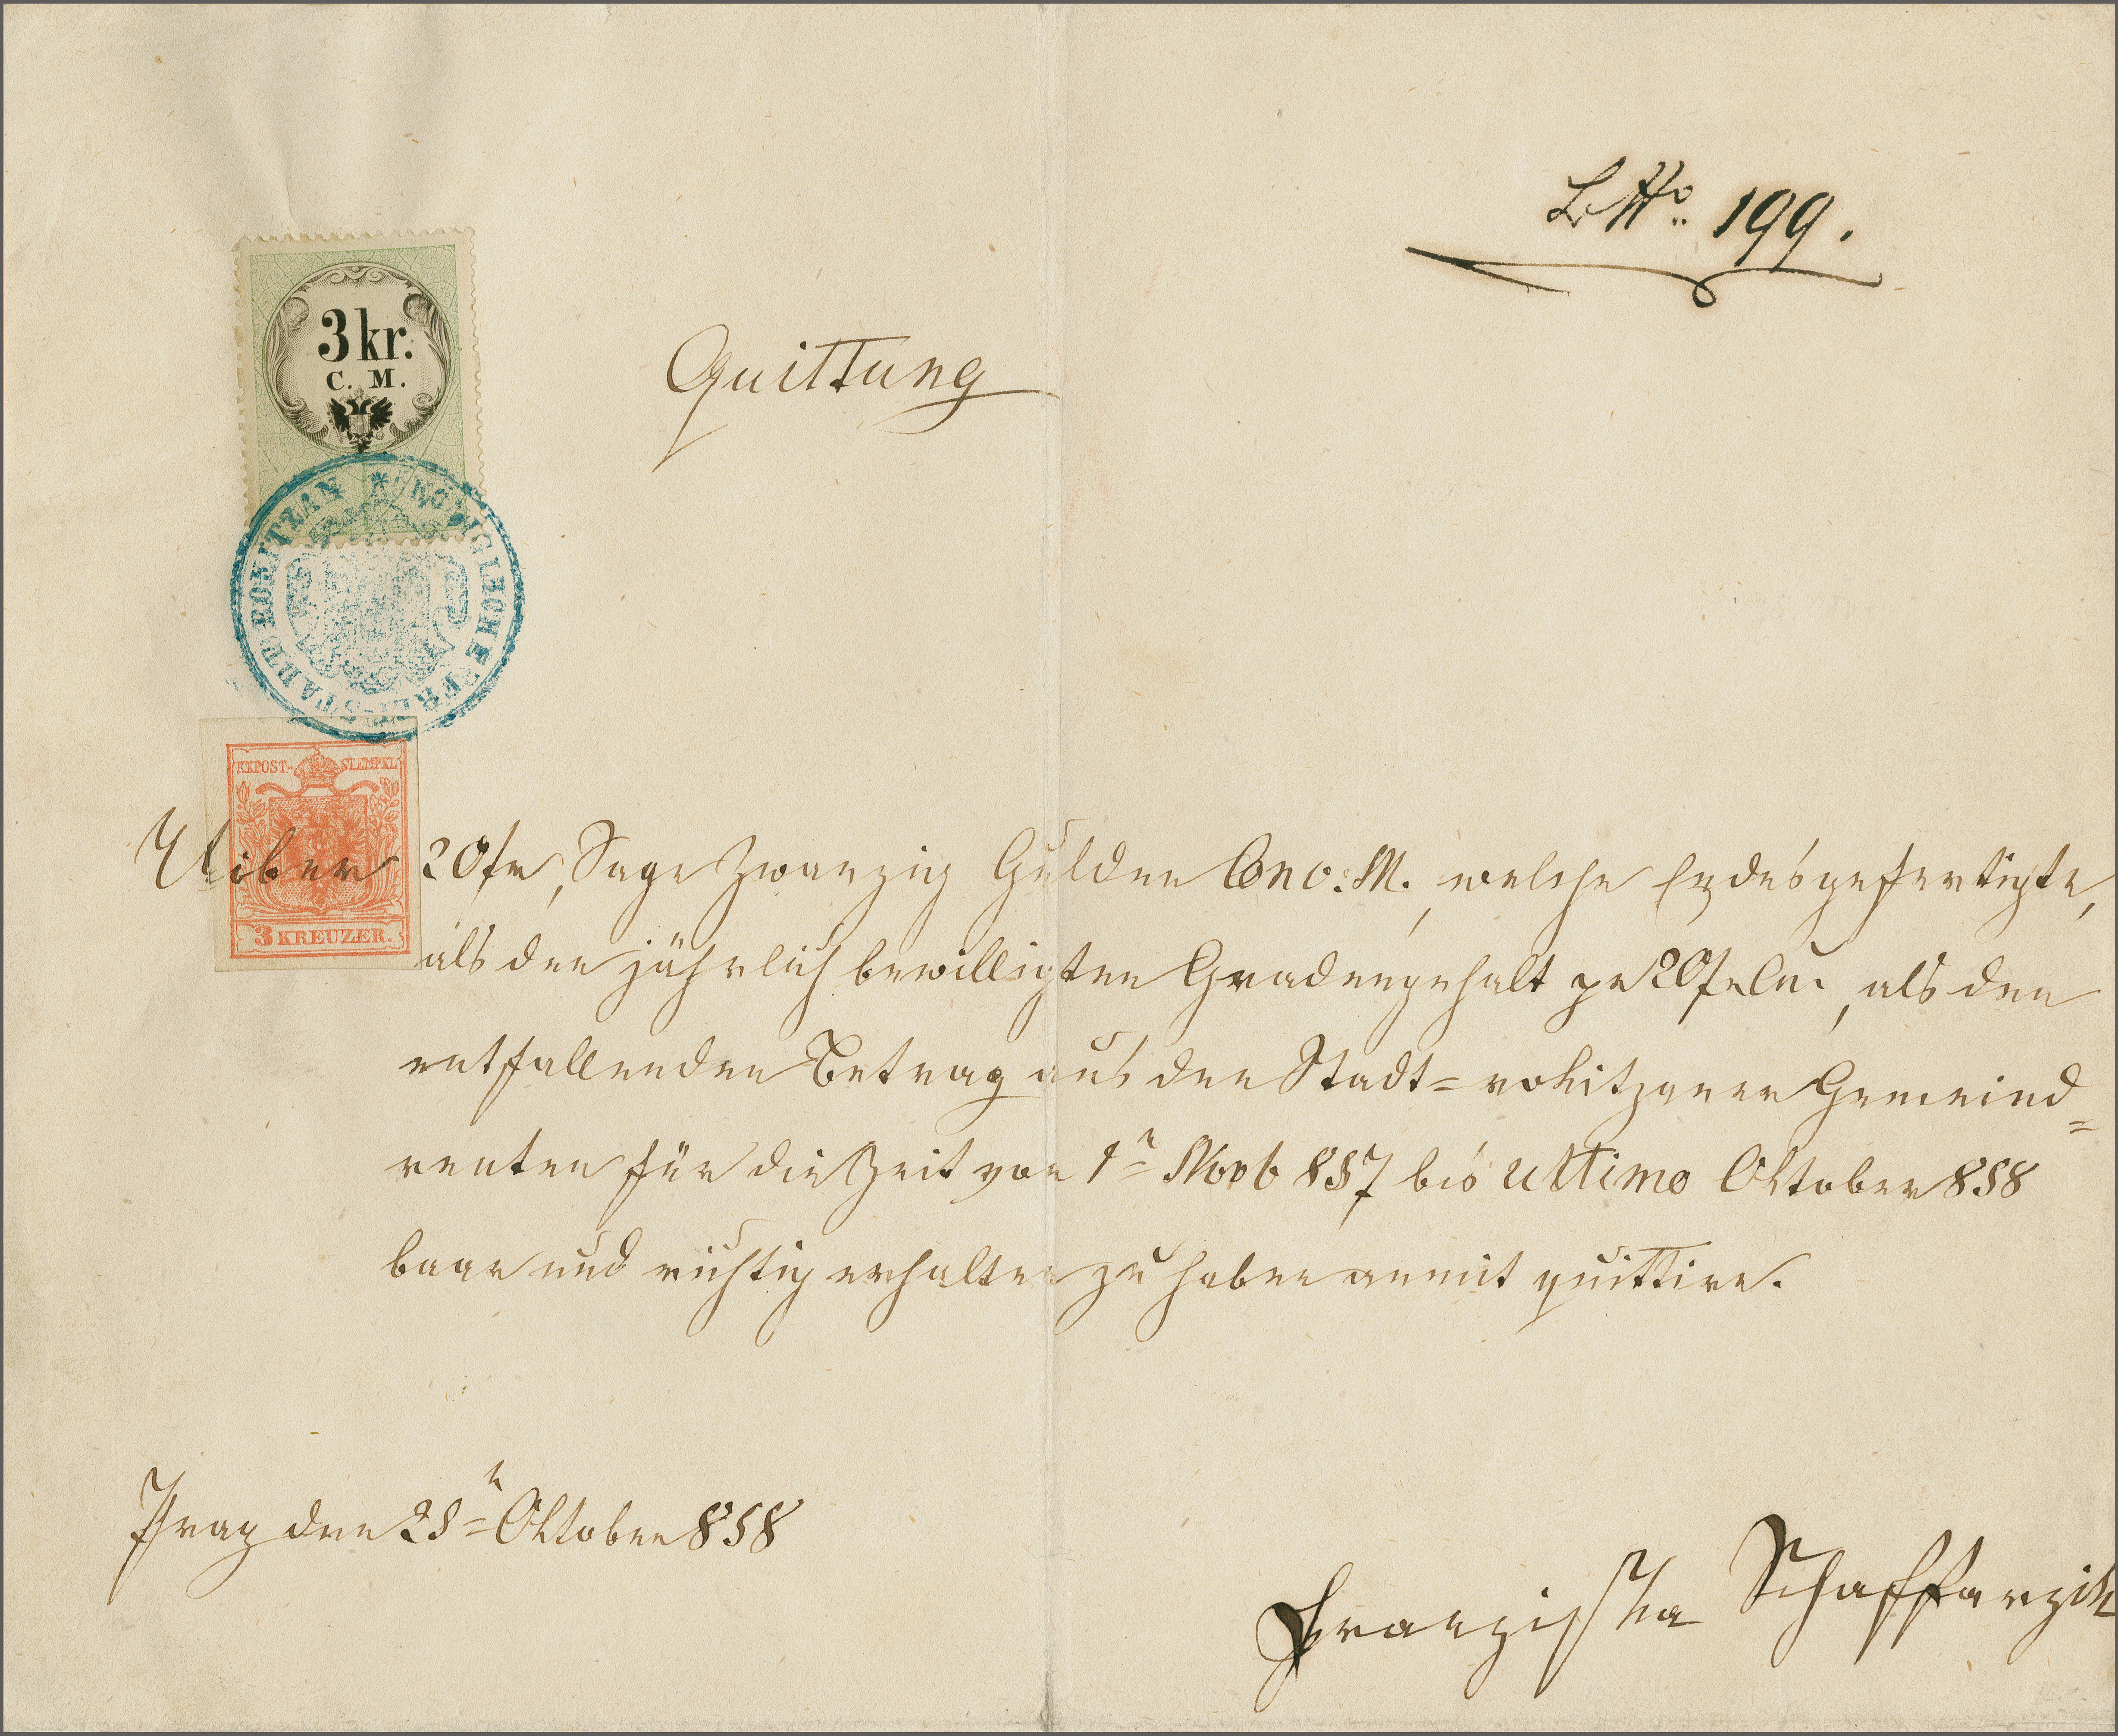 LittNo. 199.
3 kr.
C. M.
Quittung
KÖNIGLICHE FREI-STADT ROKITZAN
KKPOST-STEMPEL
3 KREUZER.
Uiber 20 fr, Sage Zwanzig Gulden Conv: M., welche Endesgefertigte,
als den jährlich bewilligten Gnadengehalt pr 20 fr Cm., als den
entfallenden Betrag aus den Stadt=rokitzaner Gemeind=
renten für die Zeit von 1n Novb 857 bis ultimo Oktober 858
baar und richtig erhalten zu haben anmit quittire.
Prag den 25n Oktober 858
Franziska Schaffarzik